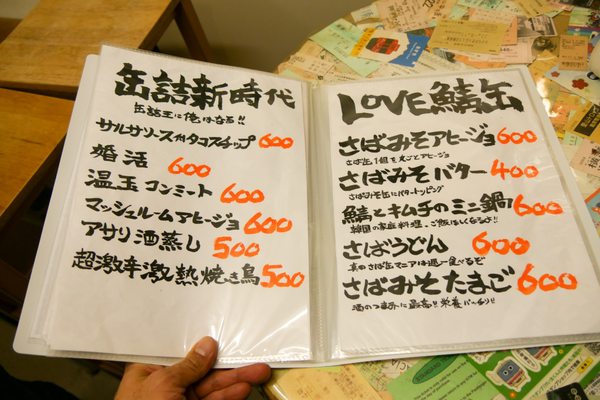 缶詰新時代
缶詰王に俺はなる!!
サルサソース付タコスチップ 600
婚活 600
温玉コンミート 600
マッシュルームアヒージョ 600
アサリ酒蒸し 500
超激辛激熱焼き鳥 500
LOVE鯖缶
さばみそアヒージョ 600
さば缶1個を丸ごとアヒージョ
さばみそバター 400
さばみそ缶にバタートッピング
鯖とキムチのミニ鍋 600
韓国の家庭料理。ご飯ほしくなるよ!!
さばうどん 600
真のさば缶マニアは週一食べるぞ
さばみそたまご 600
酒のつまみに最高!!栄養バッチリ!!